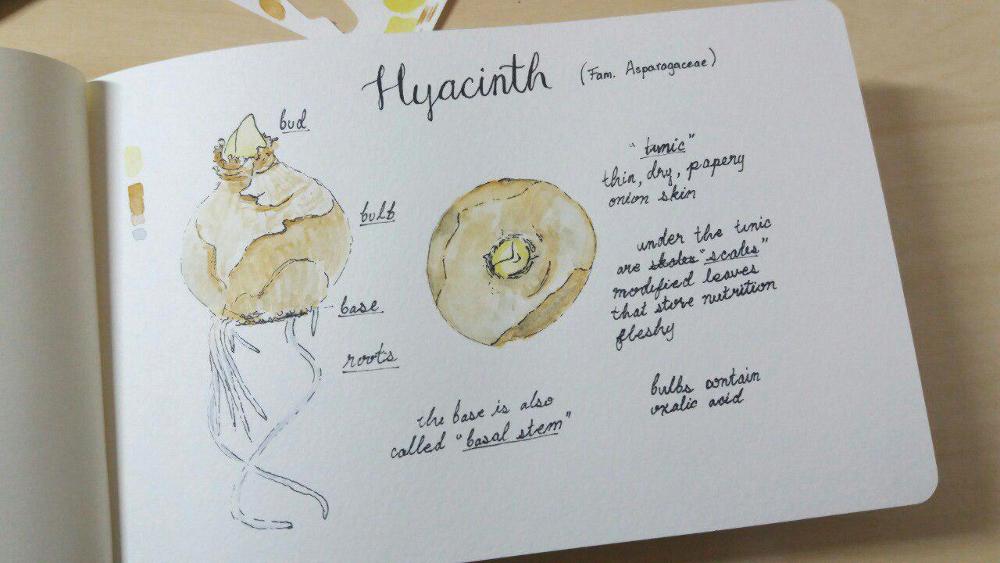 Hyacinth (Fam. Asparagaceae)
bud
bulb
base
roots
"tunic"
thin, dry, papery
onion skin
under the tunic
are skales "scales"
modified leaves
that store nutrition
fleshy
the base is also
called "basal stem"
bulbs contain
oxalic acid